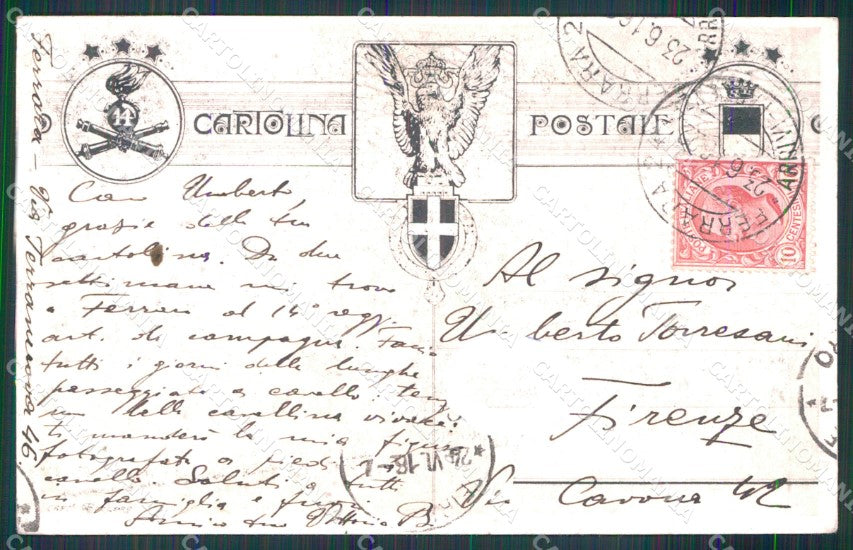 14
CARTOLINA POSTALE
FERRARA 23.6.16
FERRARA 23.6
POSTE ITALIANE
10 CENTESIMI
Caro Umberto,
grazie della tua
cartolina. Da due
settimane mi trovo
a Ferrara al 14° regg.
art. di campagna. Faccio
tutti i giorni delle lunghe
passeggiate a cavallo.
una bella cavallina vivace.
ti manderò la mia
fotografata a piedi
cavallo. Saluti a tutti
in famiglia e
Vittorio B.
Al signor
Umberto Torresani
Firenze
Via Cavour 42
24.VI.16
Ferrara - Via Terranuova 46
CARTOLINOMANIA